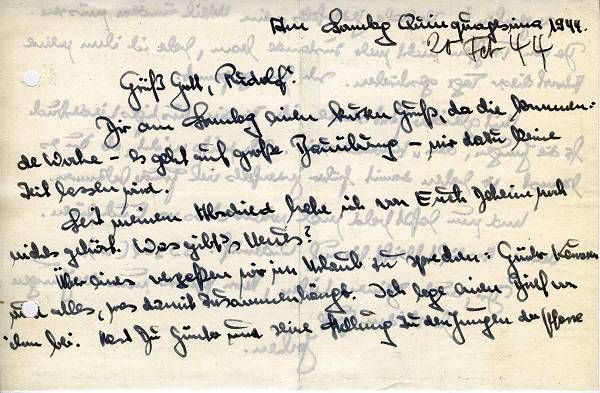 Am Sonntag Quinquagesima 1944.
20 Feb 44
Grüß Gott, Rudolf!
Dir am Sonntag einen kurzen Gruß, da die kommen-
de Woche – es geht auf große Übung – mir dazu keine
Zeit lassen wird.
Seit meinem Abschied habe ich von Euch daheim noch
nichts gehört. Was gibt's Neues?
Über eines vergaßen wir im Urlaub zu sprechen: Günter
und alles, was damit zusammenhängt. Ich lege einen Brief von
ihm bei. Hast Du Günter und seine Stellung zu den Jungen der Pfarre